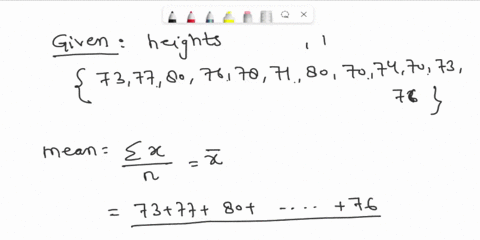 Given: heights , 1
{ 73, 77, 80, 76, 78, 71, 80, 70, 74, 70, 73,
76 }
mean = Σx / n = x̄
= 73+77+ 80+ ..... +76